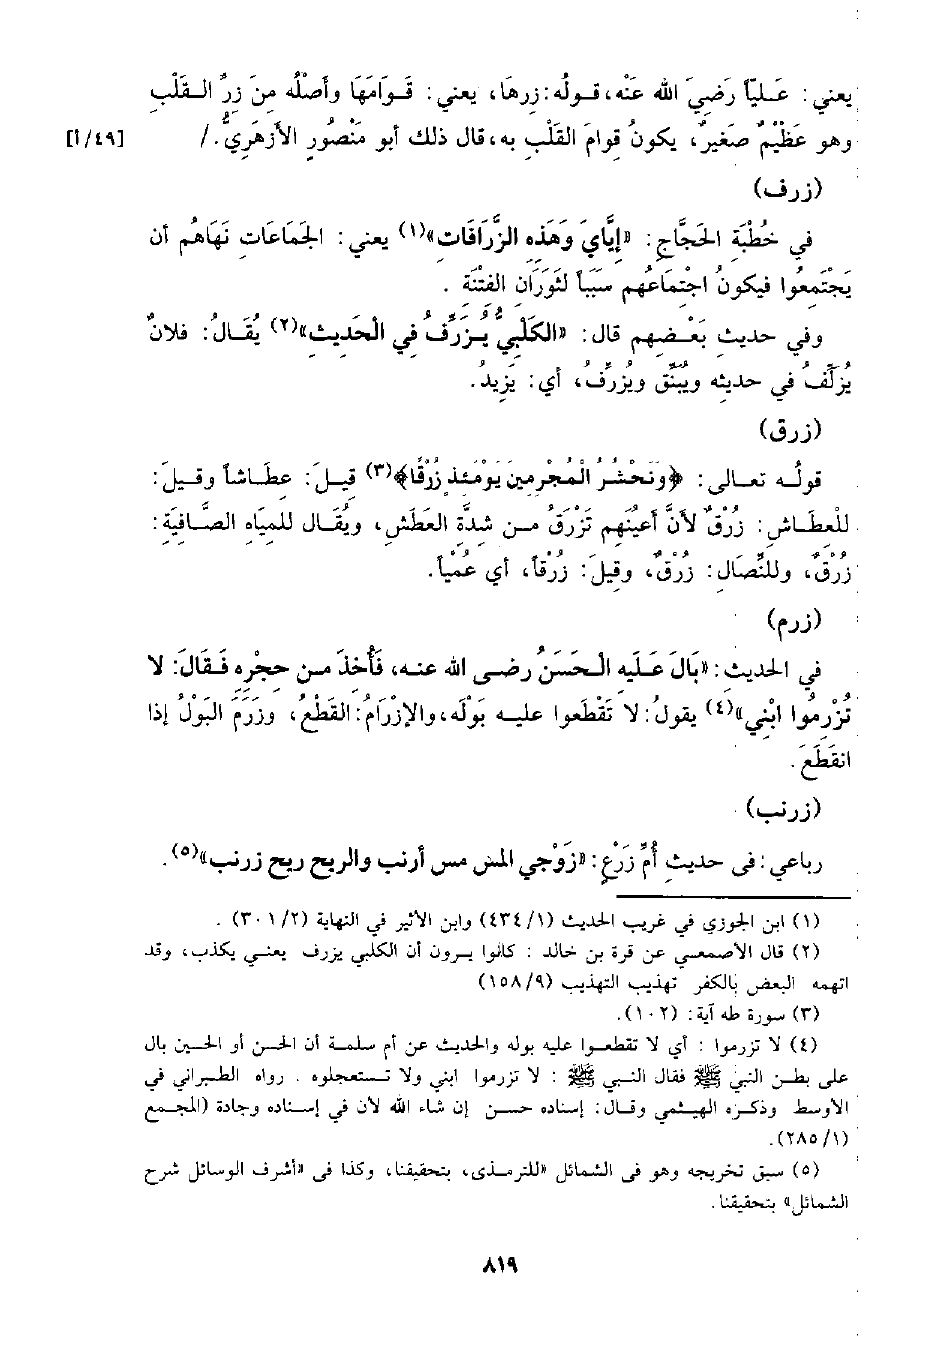 يعني: عَليّا رَضِيَ الله عَنْه، قولُه: زرهَا، يعني: قوَامَهَا وأصْلُه مِنَ زرِّ القَلْبِ
وهو عَظْيْمٌ صَغيرٌ، يكونُ قوامَ القَلْبِ به، قال ذلك أبو مَنْصُورِ الأزهَرِيُّ. / [٤٩/أ]
(زرف)
في خُطْبَة الحَجَّاجِ: «إيَّايَ وَهَذِه الزَّرَافَات»(١) يعني: الجَمَاعَاتِ نَهَاهُم أن
يَجْتَمِعُوا فيكونُ اجْتماعُهم سَبَباً لثَوَرَانِ الفتْنَة .
وفي حديث بَعْضهم قال: «الكَلْبيُّ يُزَرِّفُ في الْحَديث»(٢) يُقَالُ: فلانٌ
يُزلِّفُ في حديثه ويُبَنِّق ويُزرِّفُ، أي: يَزيدُ.
(زرق)
قولُه تعالى: ﴿ونَحْشُرُ الْمُجْرِمِينَ يَوْمَئِذٍ زُرْقًا﴾(٣) قيلَ: عطَاشاً وقيلَ:
للْعطَاش: زُرْقٌ لأنَّ أعيُنَهم تَزْرَقُ من شدَّة العَطَش، ويُقَال للميَاه الصَّافيَة:
زُرْقٌ، وللنِّصَال: زُرْقٌ، وقيلَ: زُرْقاً، أي عُمْياً.
(زرم)
في الحديث: «بَالَ عَلَيه الحَسَنُ رضى الله عنه، فَأُخذَ من حجْرِه فَقَالَ: لا
تُزْرِمُوا ابْني»(٤) يقولُ: لا تَقْطَعوا عليه بَوْلَه، والإزْرَامُ: القَطْعُ، وزَرَمَ البَوْلُ إذا
انقَطَعَ.
(زرنب)
رباعي: فى حديثِ أُمِّ زَرْعٍ: «زَوْجي المس مس أرنب والريح ريح زرنب»(٥).
(١) ابن الجوزي في غريب الحديث (١/ ٤٣٤) وابن الأثير في النهاية (٢/ ٣٠١) .
(٢) قال الأصمعي عن قرة بن خالد : كانوا يرون أن الكلبي يزرف يعني يكذب، وقد
اتهمه البعض بالكفر تهذيب التهذيب (٩/ ١٥٨)
(٣) سورة طه آية: (١٠٢).
(٤) لا تزرموا : أي لا تقطعوا عليه بوله والحديث عن أم سلمة أن الحسن أو الحسين بال
على بطن النبي ﷺ فقال النبي ﷺ : لا تزرموا ابني ولا تستعجلوه . رواه الطبراني في
الأوسط وذكره الهيثمي وقال: إسناده حسن إن شاء الله لأن في إسناده وجادة (المجمع
(١/ ٢٨٥).
(٥) سبق تخريجه وهو فى الشمائل «للترمذى، بتحقيقنا، وكذا فى «أشرف الوسائل شرح
الشمائل» بتحقيقنا.
٨١٩